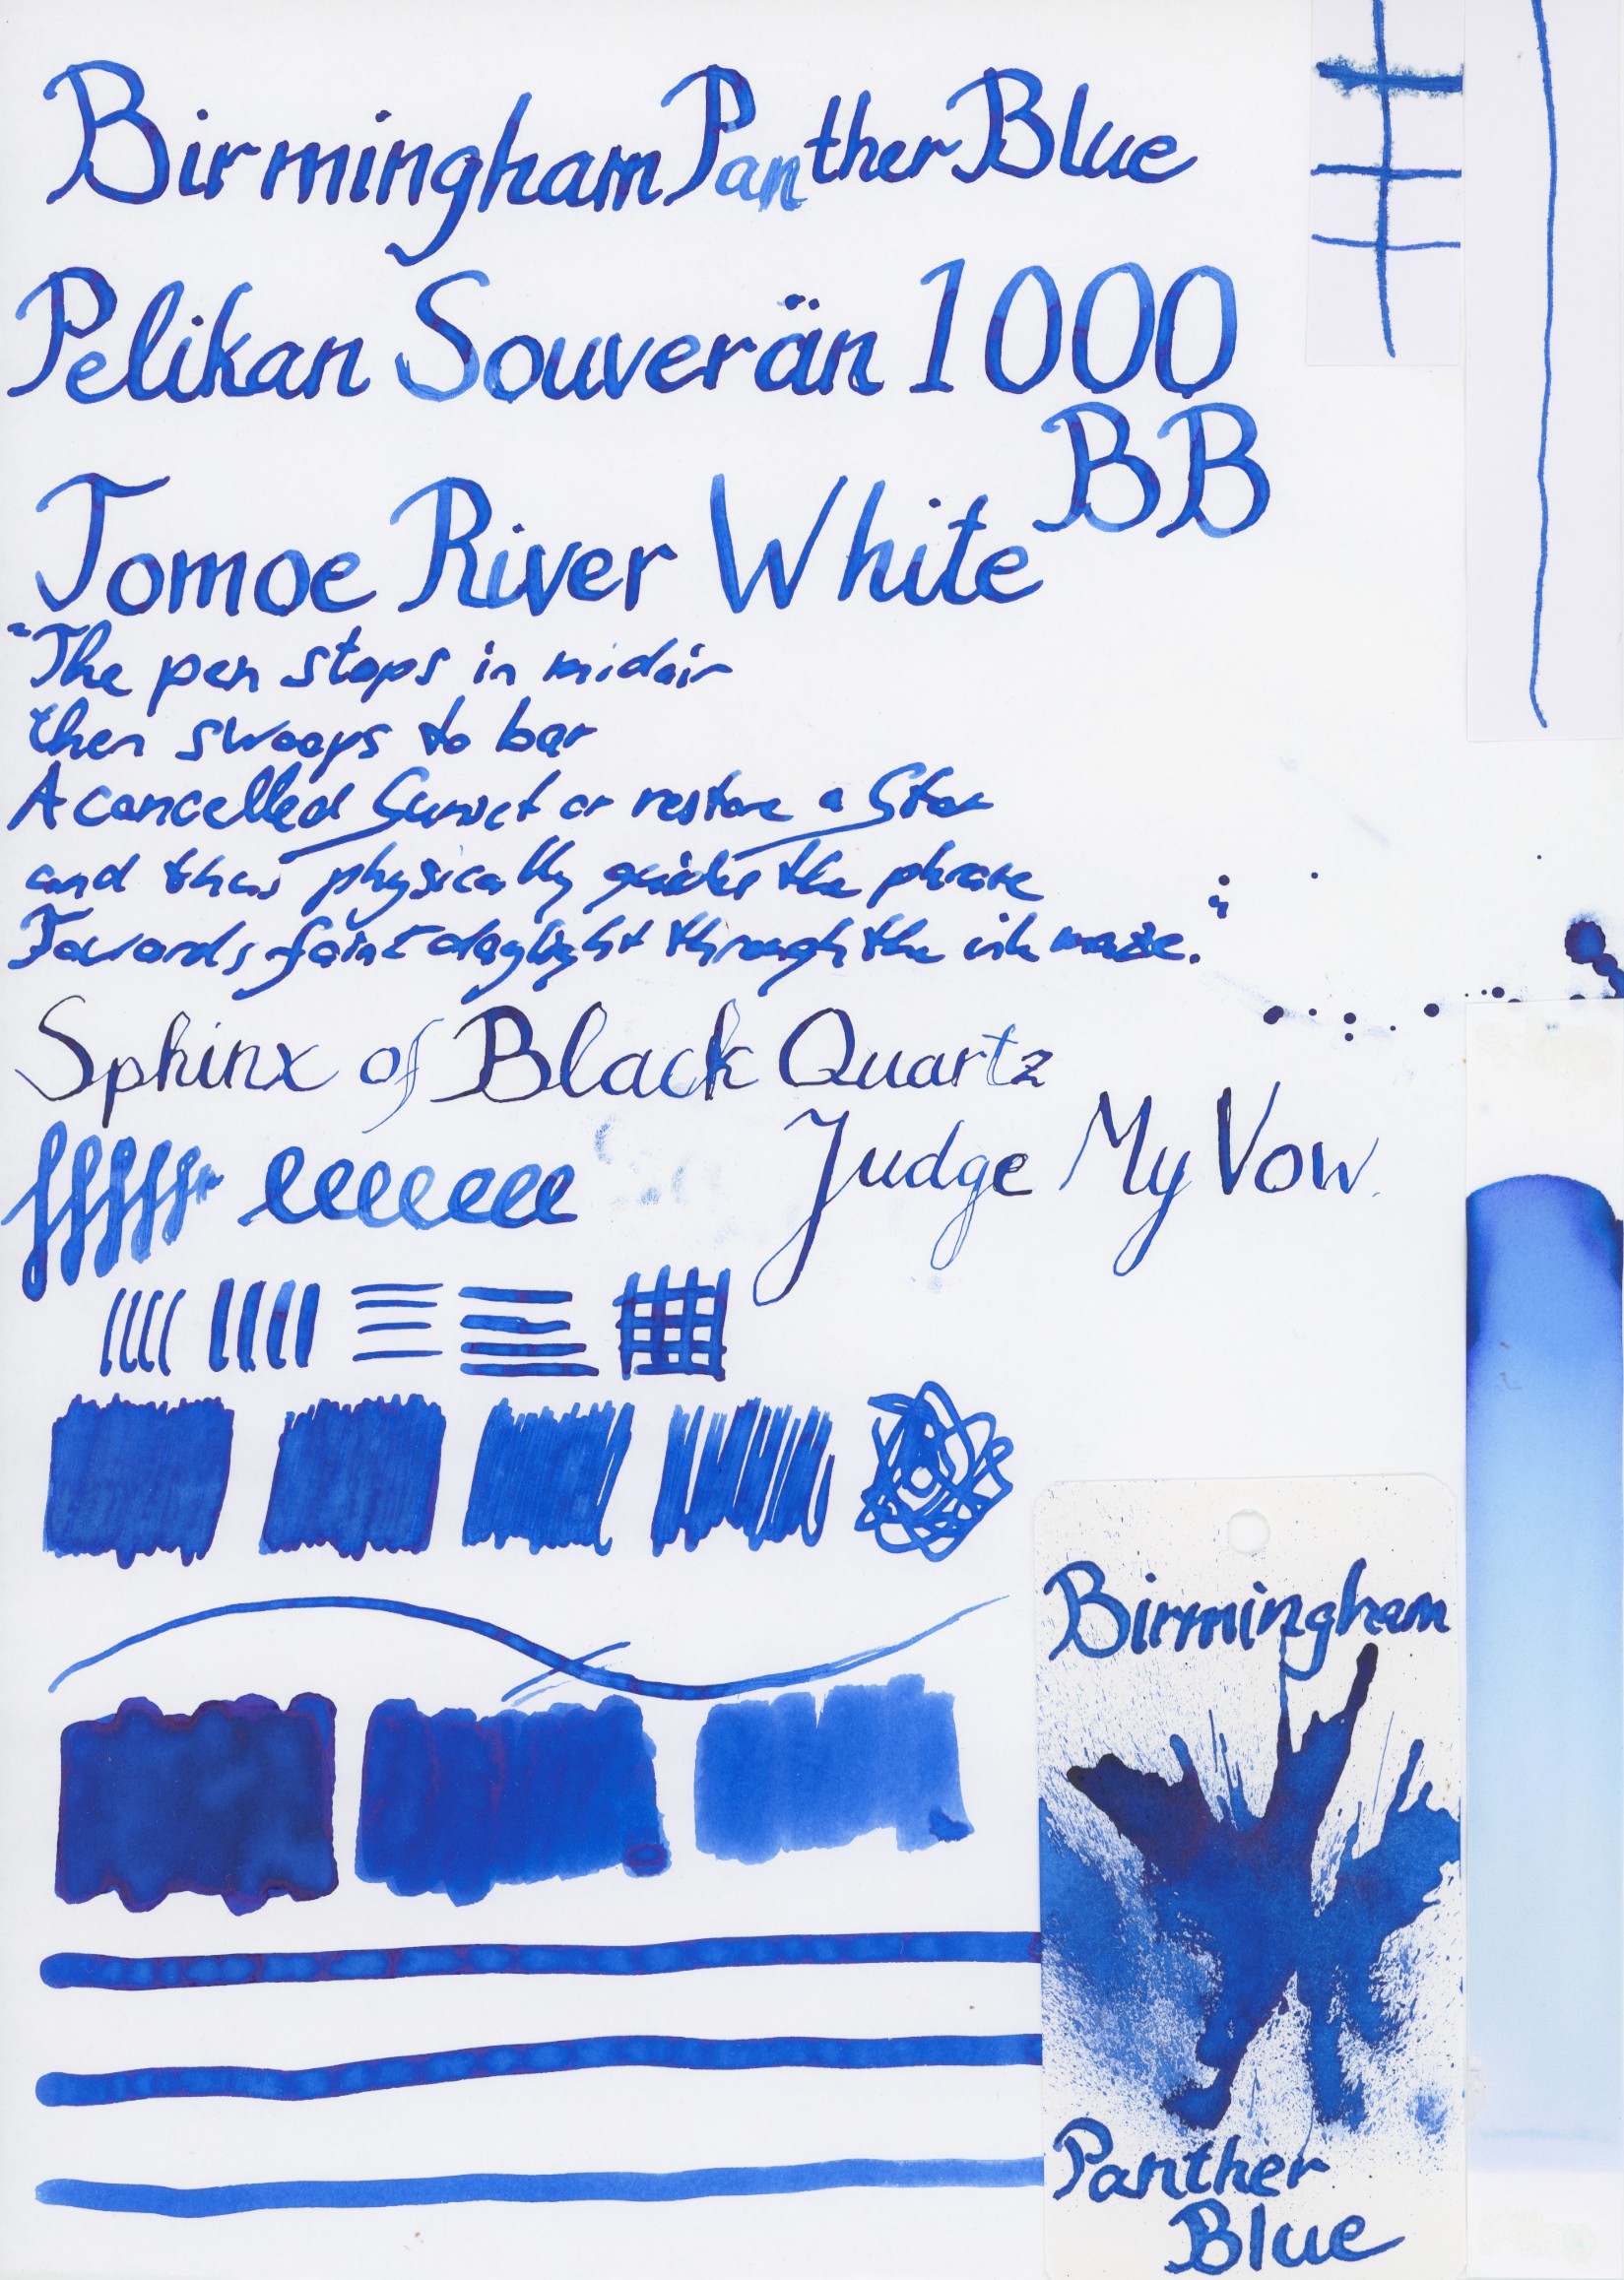 Birmingham Panther Blue
Pelikan Souverän 1000
BB
Tomoe River White
"The pen stops in midair
then swoops to bar
A cancelled Sunset or restore a Star
and thus physically guides the phrase
Towards faint daylight through the ink maze."
Sphinx of Black Quartz
Judge My Vow.
Birmingham
Panther
Blue